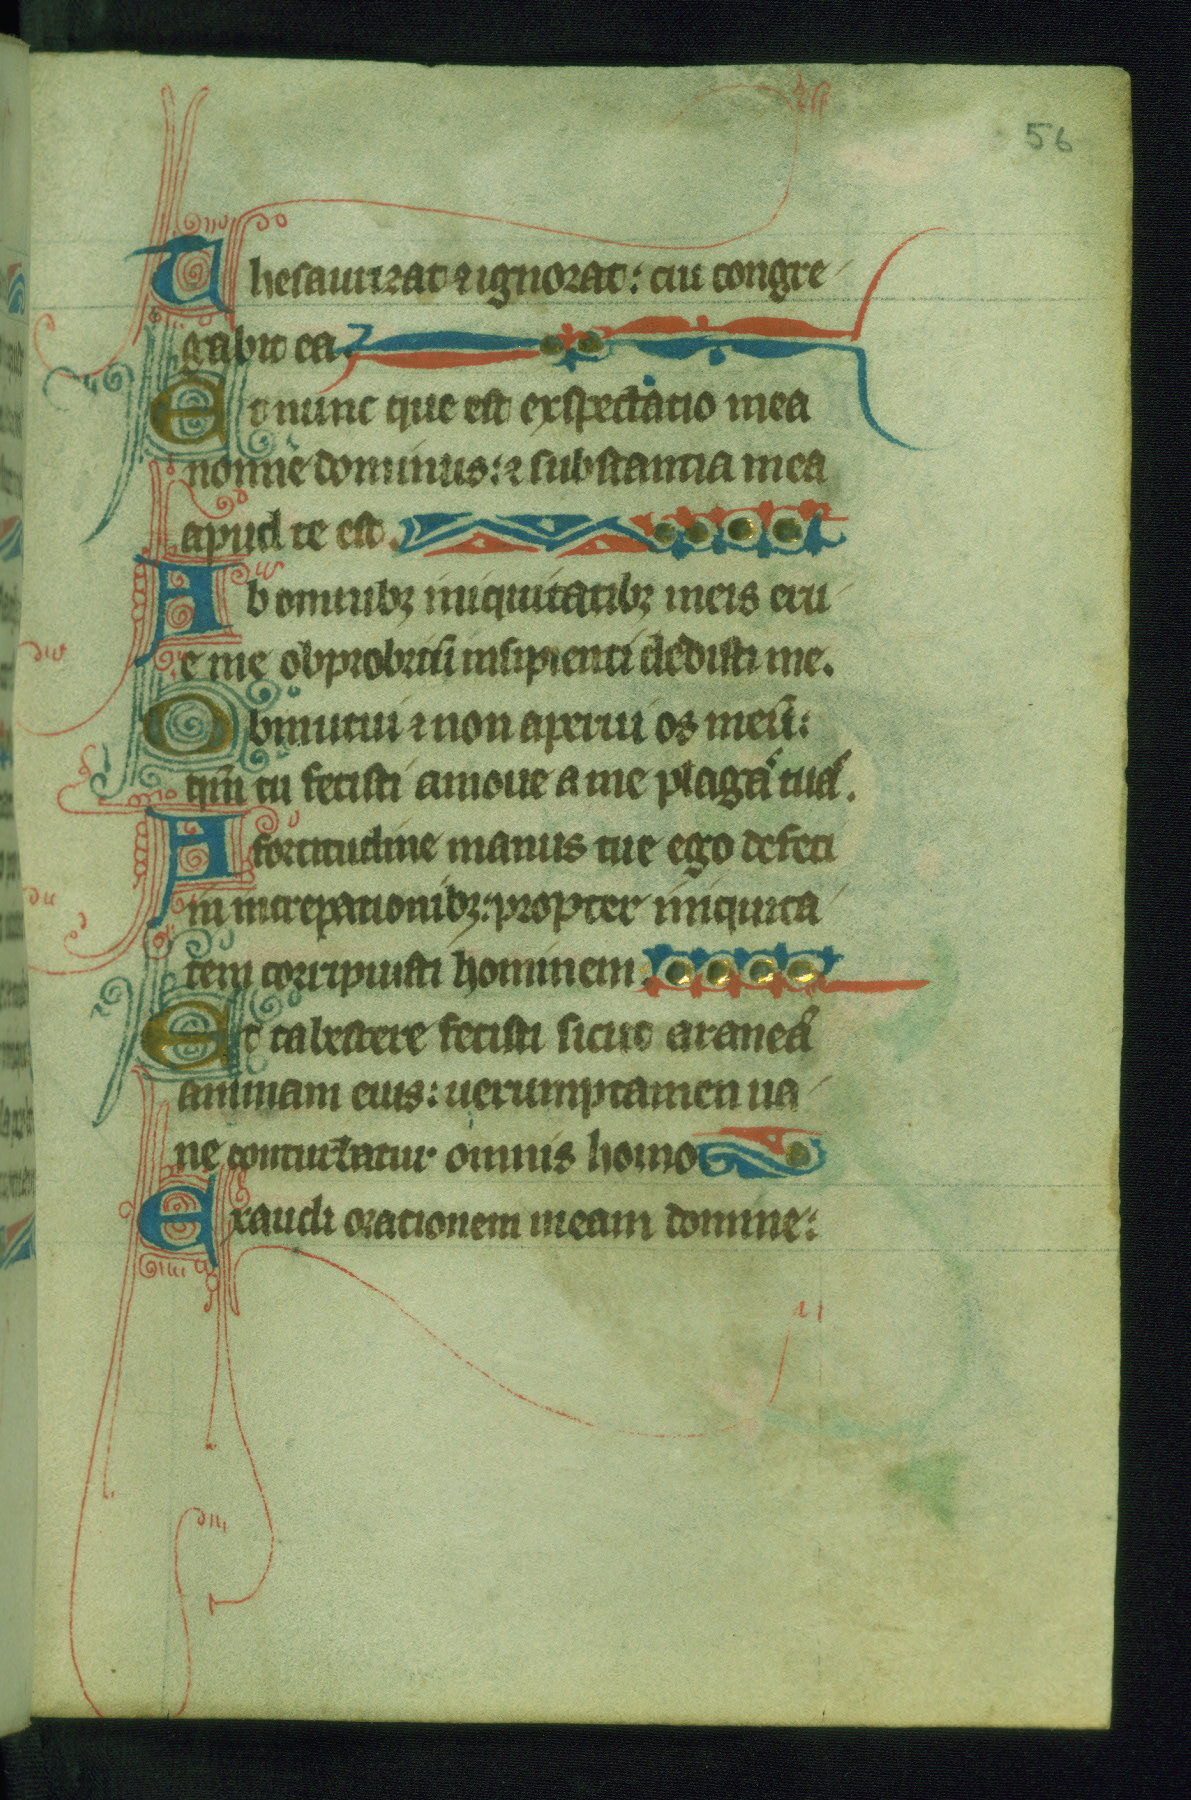 56
Thesaurizat ⁊ ignorat: cui congre
gabit ea.
Et nunc que est exspectatio mea
nonne dominus: ⁊ substantia mea
apud te est.
Ab omnibꝫ iniquitatibꝫ meis eru
e me obprobriū insipienti dedisti me.
Obmutui ⁊ non aperui os meū:
qm̄ tu fecisti amoue a me plagā tuā.
A fortitudine manus tue ego defeci
in increpationibꝫ: propter iniquita
tem corripuisti hominem.
Et tabescere fecisti sicut araneā
animam eius: uerumptamen ua
ne conturbatur omnis homo
Exaudi orationem meam domine: